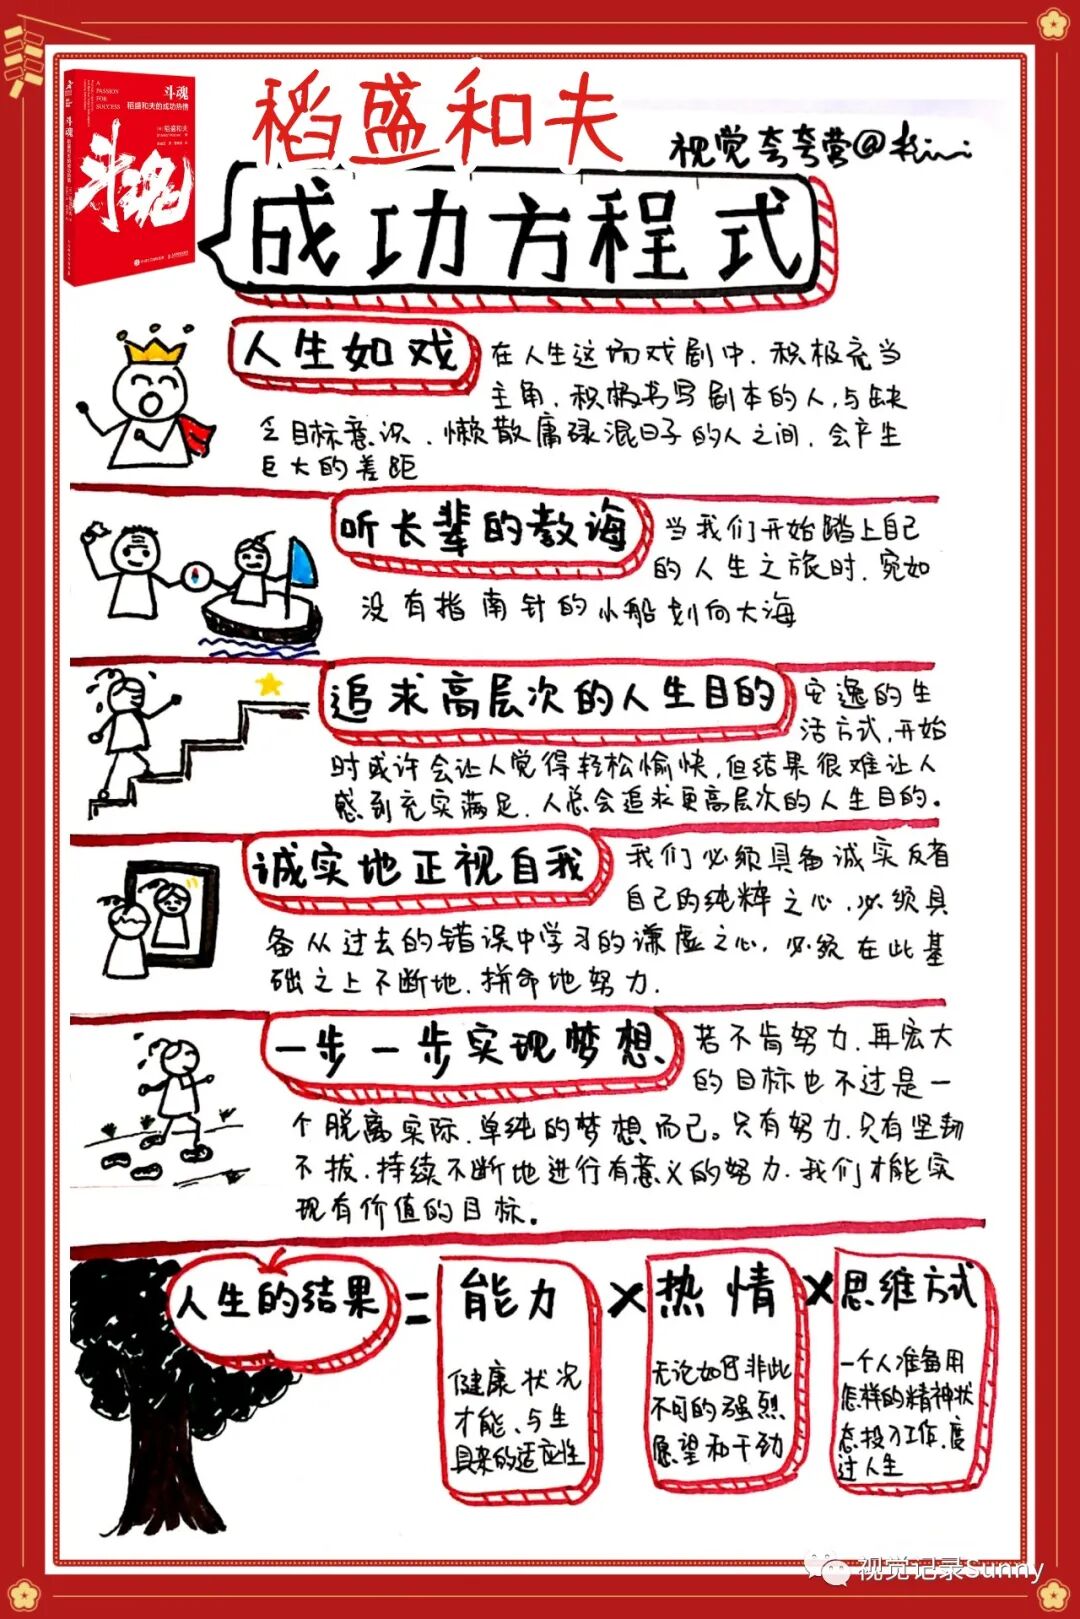 A
PASSION
FOR
SUCCESS
斗魂
稻盛和夫的成功热情
稻盛和夫
斗魂
斗魂
稻盛和夫
视觉夸夸营@kimi
成功方程式
人生如戏
在人生这场戏剧中，积极充当
主角，积极书写剧本的人，与缺
乏目标意识、懒散庸碌混日子的人之间，会产生
巨大的差距
听长辈的教诲
当我们开始踏上自己
的人生之旅时，宛如
没有指南针的小船划向大海
追求高层次的人生目的
安逸的生
活方式，开始
时或许会让人觉得轻松愉快，但结果很难让人
感到充实满足，人总会追求更高层次的人生目的。
诚实地正视自我
我们必须具备诚实反省
自己的纯粹之心，必须具
备从过去的错误中学习的谦虚之心，必须在此基
础之上不断地、拼命地努力.
一步一步实现梦想
若不肯努力，再宏大
的目标也不过是一
个脱离实际、单纯的梦想而已。只有努力，只有坚韧
不拔，持续不断地进行有意义的努力，我们才能实
现有价值的目标。
人生的结果=能力×热情×思维方式
健康状况
才能、与生
具来的适应性
无论如何非此
不可的强烈
愿望和干劲
一个人准备用
怎样的精神状
态投入工作，度
过人生
视觉记录Sunny